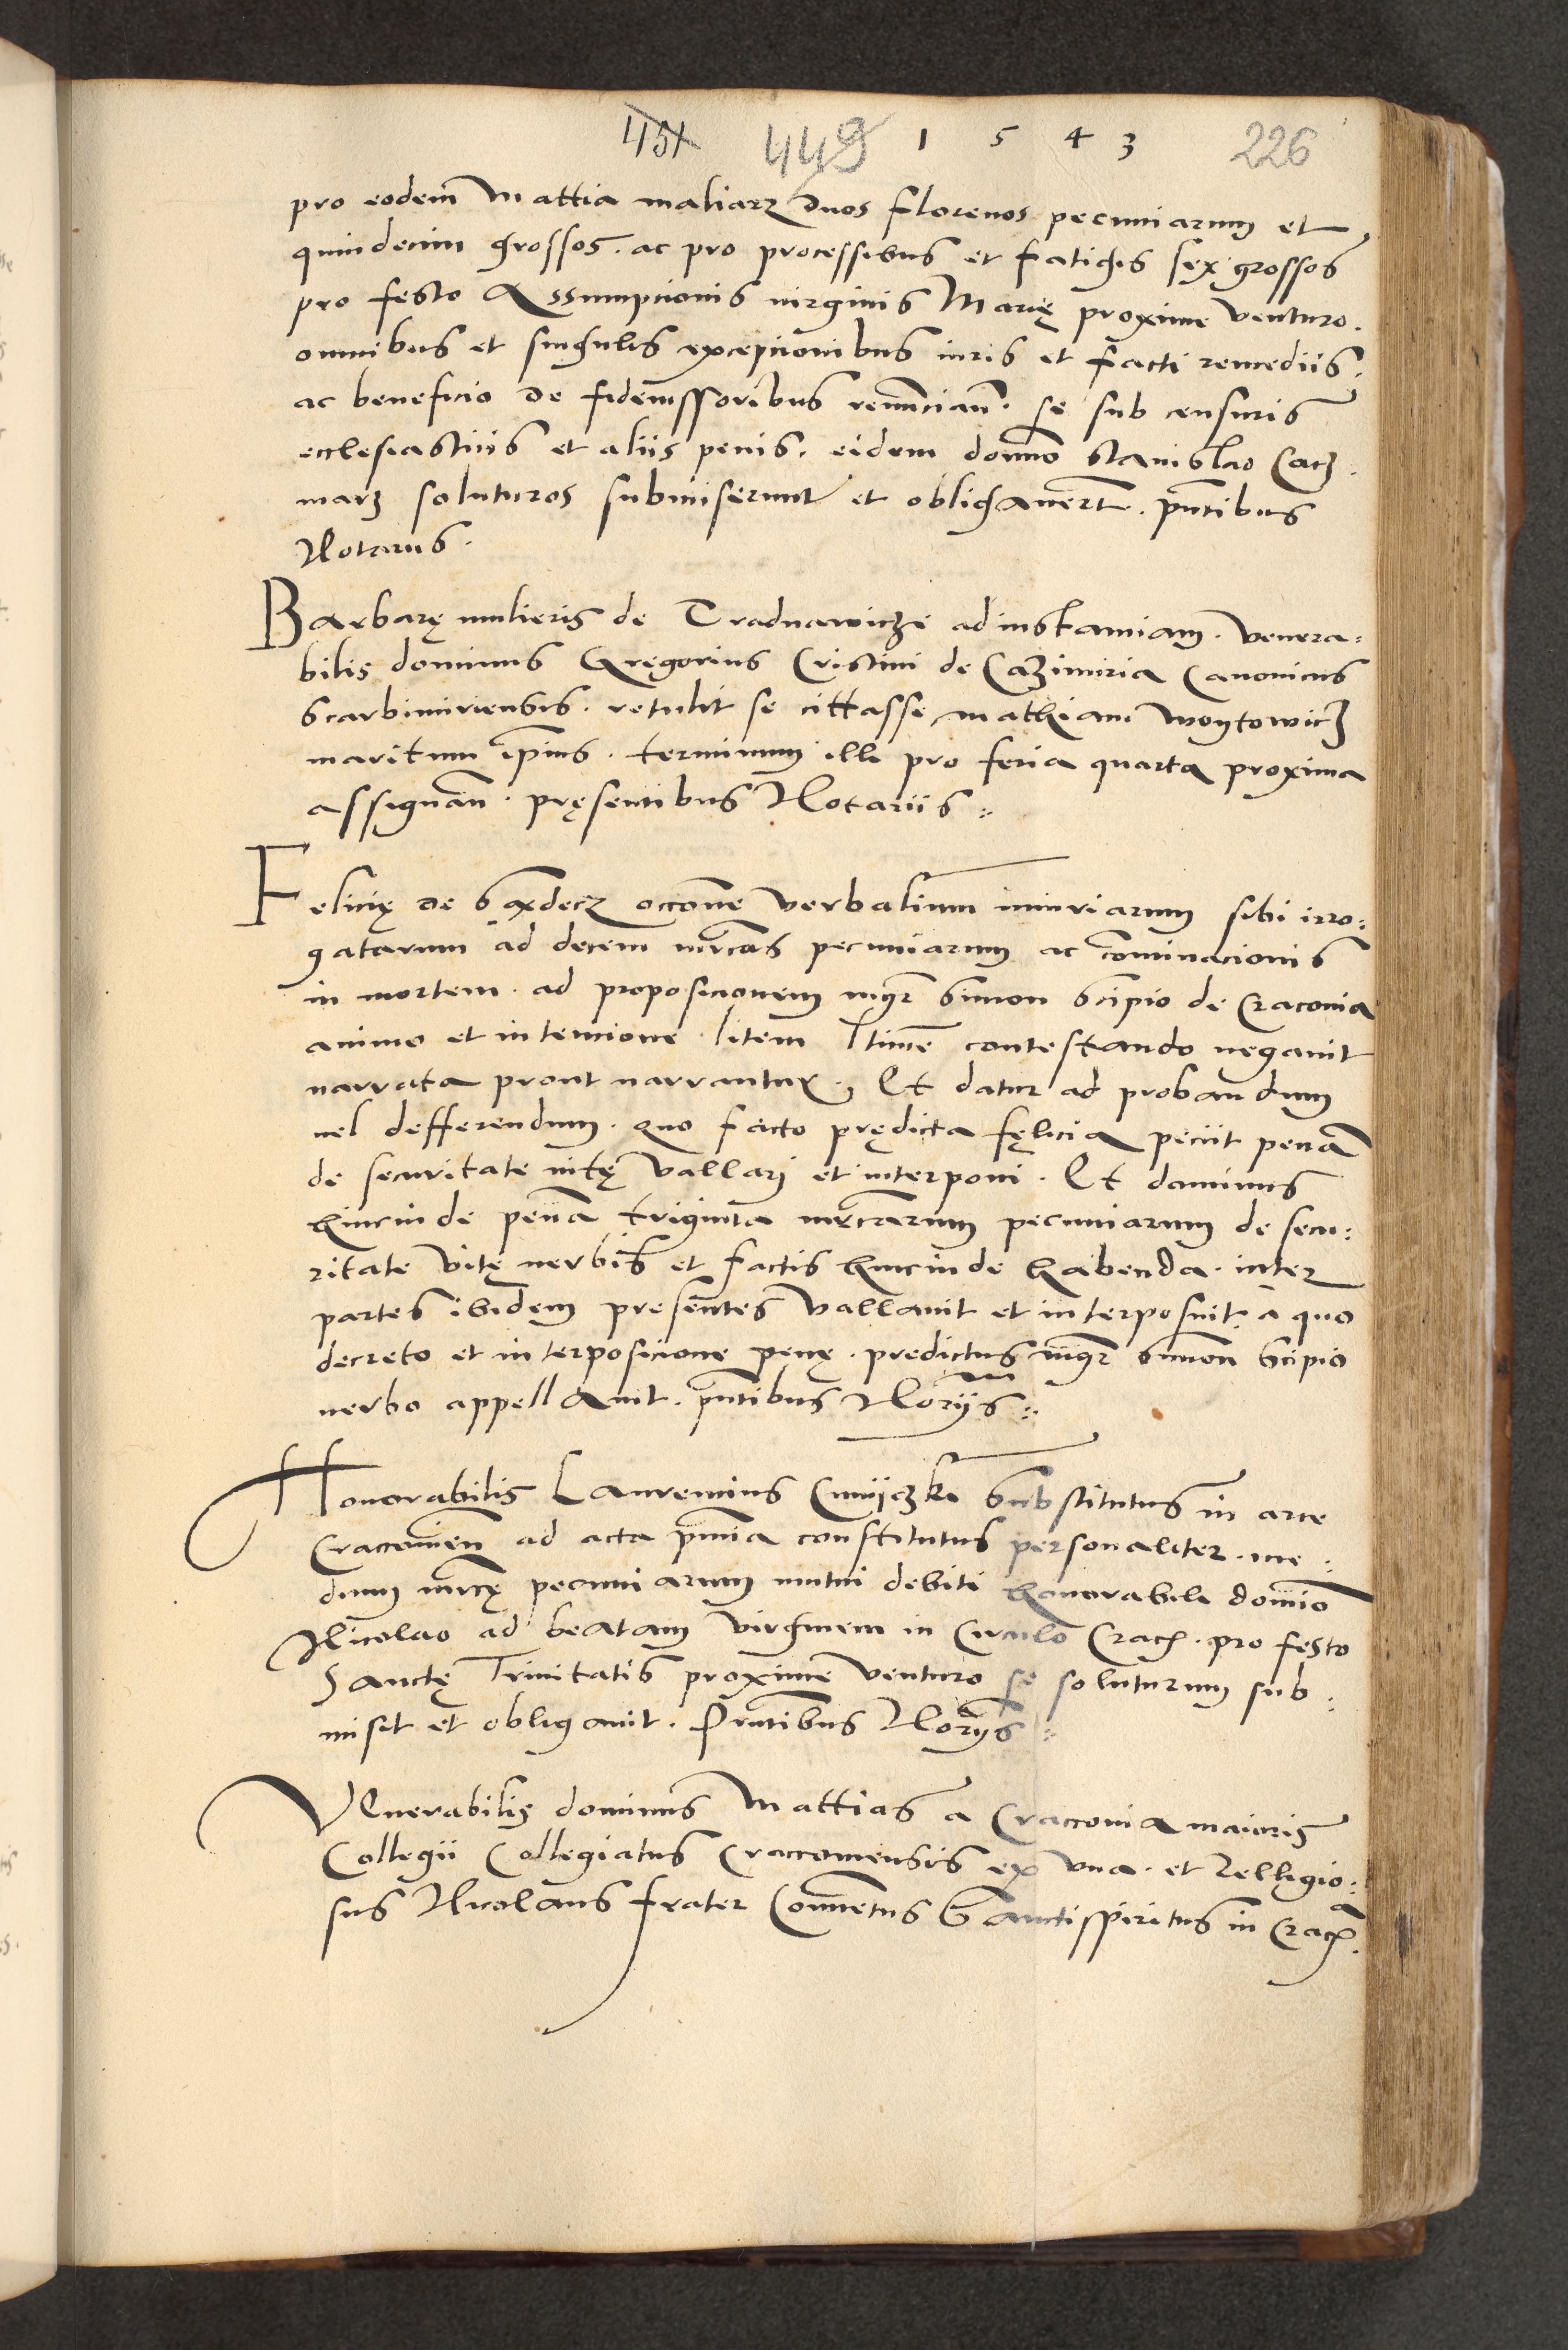 451 449 1 5 4 3 226
pro eodem Mattia maliarz duos florenos pecuniarum et
quindecim grossos. ac pro processibus et fatigis sex grossos
pro festo Assumpcionis virginis Marię proxime venturo.
omnibus et singulis excepcionibus iuris et facti remediis.
ac beneficio de fideiussoribus renuncian̄. se sub censuris
ecclesiasticis et aliis penis. eidem domno Stanislao Cacz
marz soluturos submiserunt et obligauerūt. pn̄tibus
Notariis.
Barbarę mulieris de Tradnawicze ad instanciam. venera-
bilis dominus Gregorius Cristini de Cazimiria Canonicus
Scarbimiriensis. retulit se cittasse Mathiam Woytowicz
maritum ip̄ius. terminum illi pro feria quarta proxima
assignan̄. pręsentibus Notariis
Felicię de occōne verbalium iniuriarum sibi irro-
gatarum ad decem mr̄cas pecuniarum ac cōminacionis
in mortem. ad proposicionem mgr̄ Simon Scipio de Cracouia
animo et intencione litem l̄time contestando negauit
narrata prout narrantur. Et datur ad probandum
uel defferendum. quo facto prędicta fęlicia peciit penā
de securitate vitę vallari et interponi. Et dominus
hincinde penā triginta mr̄carum pecuniarum de secu-
ritate vitę verbis et factis hincinde habenda. inter
partes ibidem presentes vallauit et interposuit. a quo
decreto et interposicione penę. predictus mgr̄ Simon Scipio
verbo appellauit. pn̄tibus Nōriis
Honorabilis Laurencius Substitutus in arce
Craccouien̄ ad acta pn̄cia constitutus personaliter. me-
dium mr̄cę pecuniarum mutui debiti honorabili domīo
Nicolao ad beatam virginem in Circulo Crac̄. pro festo
Sanctę Trinitatis proxime venturo se soluturum sub-
misit et obligauit. Pn̄tibus Nōriis
Venerabilis dominus Mattias a Craccouia maioris
Collegii Collegiatus Craccouiensis ex vna. et Relligio-
sus Nicolaus frater Conuentus Sanctispiritus in Crac̄.